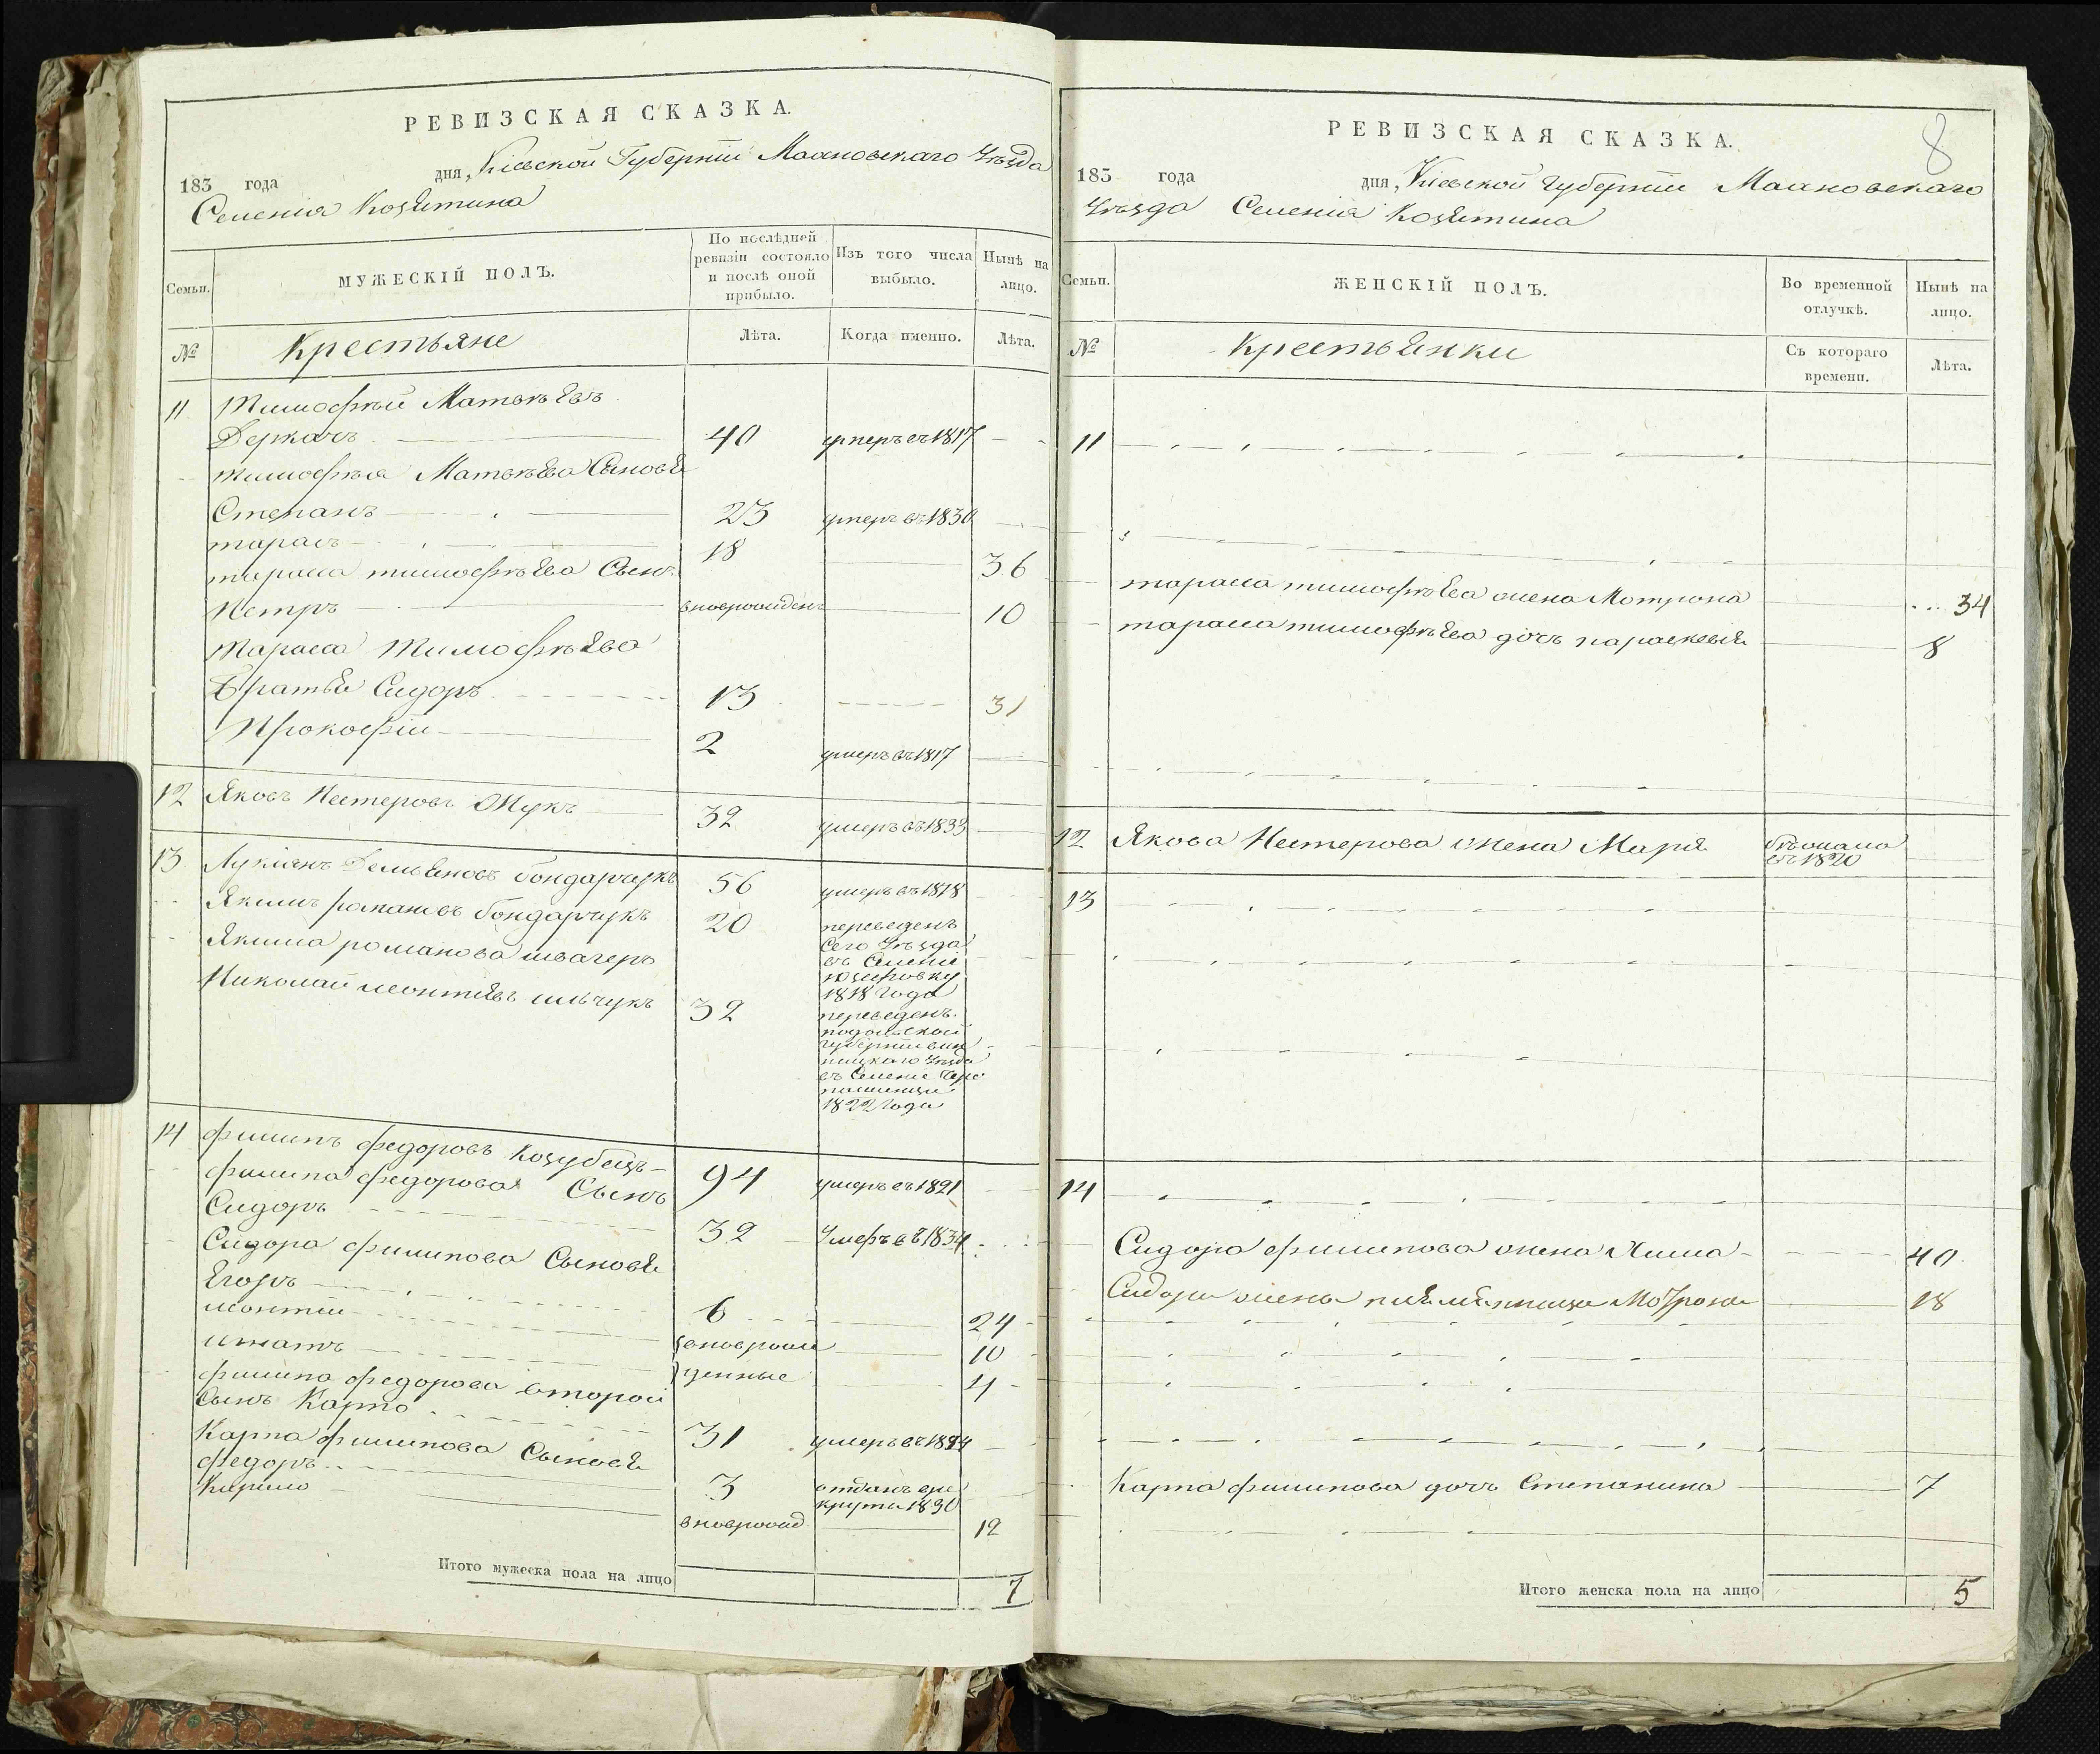 РЕВИЗСКАЯ СКАЗКА.
183 года дня, Кіевской Губерніи Махновскаго Уѣзда
Селенія Козятина
Семьи. МУЖЕСКІЙ ПОЛЪ. По послѣдней ревизіи состояло и послѣ оной прибыло. Изъ того числа выбыло. Нынѣ на лицо.
№ Крестьяне Лѣта. Когда именно. Лѣта.
11 Тимофѣй Матвѣевъ
Деркачъ 40 умеръ въ 1817
Тимофѣя Матвѣева Сыновья
Степанъ 23 умеръ въ 1830
тарасъ 18 36
тараса тимофѣева Сынъ
Петръ вноврожденъ 10
Тараса Тимофѣева
братья Сидоръ 13 31
Прокофій 2 умеръ въ 1817
12 Яковъ Нестеровъ Жукъ 32 умеръ въ 1833
13 Лукіянъ Демьяновъ бондарчукъ 56 умеръ въ 1818
Якимъ романовъ бондарчукъ 20 переведенъ
Сего Уѣзда
въ Селеніе
юзефовку
1818 Года
Якима романова швагеръ
Николай леонтьевъ ильчукъ 32 переведенъ
подольской
губерніи вин
ницкаго Уѣзда
въ Селеніе
1822 Года
14 филипъ федоровъ Козубецъ 94 умеръ въ 1821
филипа федорова Сынъ
Сидоръ 32 Умеръ въ 1834
Сидора филипова Сыновья
Егоръ 6 24
леонтій вноврож 10
игнатъ денные 4
филипа федорова второй
Сынъ Карпо 31 умеръ въ 1824
Карпа филипова Сыновья
федоръ 3 отданъ вре
круты 1830
Кирило вноврожд 12
Итого мужеска пола на лицо 7
РЕВИЗСКАЯ СКАЗКА. 8
183 года дня, Кіевской Губерніи Махновскаго
Уѣзда Селенія Козятина
Семьи. ЖЕНСКІЙ ПОЛЪ. Во временной отлучкѣ. Нынѣ на лицо.
№ Крестьянки Съ котораго времени. Лѣта.
11
тараса тимофѣева жена Мотрона 34
тараса тимофѣева дочь параскевія 8
12 Якова Нестерова жена Марія бѣжала
въ 1820
13
14
Сидора филипова жена Хима 40
Сидора жены племянница Мотрона 18
Карпа филипова дочь Степанида 7
Итого женска пола на лицо 5